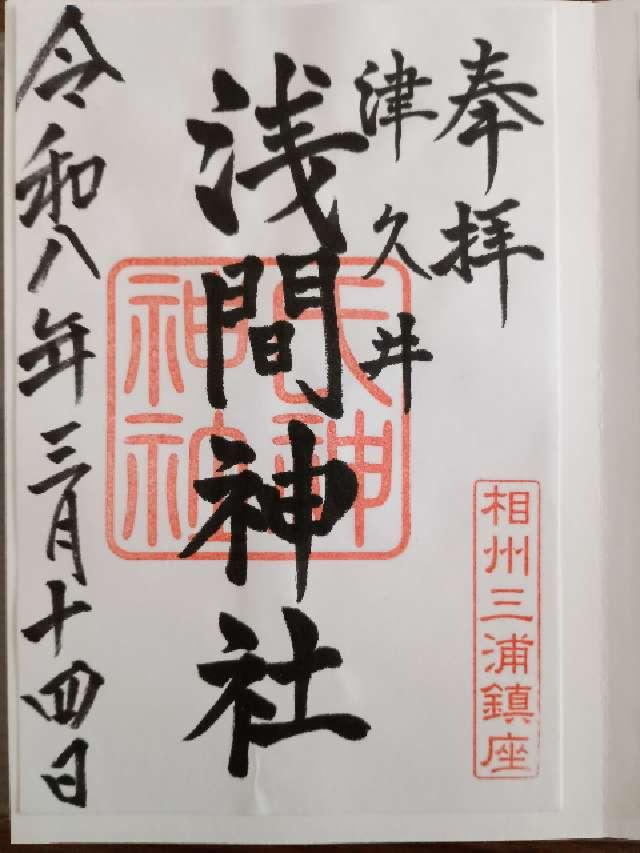 奉拝
相州三浦鎮座
津久井
浅間神社
天神
神社
令和八年三月十四日